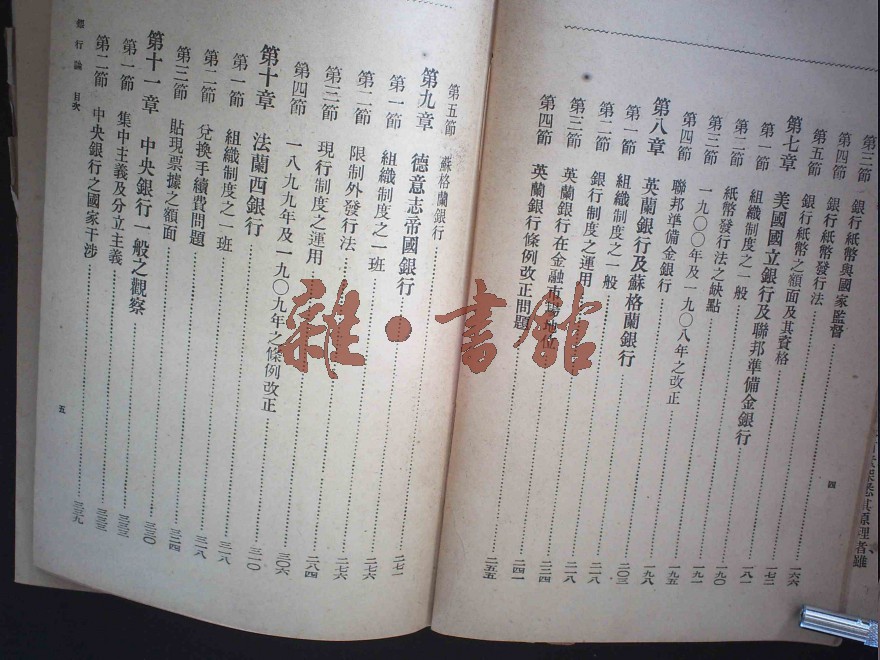 第三節 銀行紙幣與國家監督………一六六
第四節 銀行紙幣發行法………一七二
第五節 銀行紙幣之額面及其資格………一八一
第七章 美國國立銀行及聯邦準備金銀行………一九〇
第一節 組織制度之一般………一九一
第二節 紙幣發行法之缺點………一九五
第三節 一九〇〇年及一九〇八年之改正………一九八
第四節 聯邦準備金銀行………二〇三
第八章 英蘭銀行及蘇格蘭銀行………二一八
第一節 組織制度之一般………二一八
第二節 銀行制度之運用………二三四
第三節 英蘭銀行在金融市場地位………二四一
第四節 英蘭銀行條例改正問題………二五五
四
第五節 蘇格蘭銀行………二七一
第九章 德意志帝國銀行………二七六
第一節 組織制度之一班………二七六
第二節 限制外發行法………二八四
第三節 現行制度之運用………三〇六
第四節 一八九九年及一九〇九年之條例改正………三一〇
第十章 法蘭西銀行………三一八
第一節 組織制度之一班………三一八
第二節 兌換手續費問題………三二四
第三節 貼現票據之額面………三三〇
第十一章 中央銀行一般之觀察………三三三
第一節 集中主義及分立主義………三三三
第二節 中央銀行之國家干涉………三三九
銀行論 目次
五
雜·書館
其原理者雖